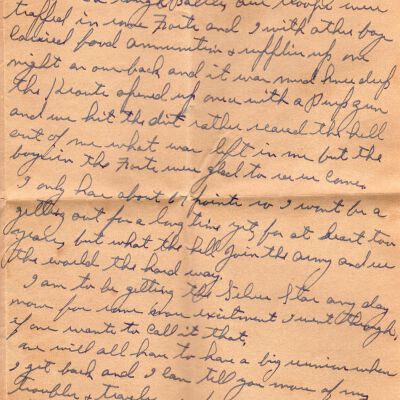 our troops were
trapped in some Forts and I with other boys
carried food ammunition & supplies up one
night on our back and it was mud knee deep
the Krauts opened up once with a Burp gun
and we hit the dirt rather scared the hell
out of me what was left in me but the
boys in the Forts were glad to see us come.
I only have about 67 points so I won't be a
getting out for a long time yet, for at least two
years, but what the hell Join the army and see
the world the hard way.
I am to be getting the Silver Star any day
now for some more excitment I went through,
if one wants to call it that,
we will all have to have a big reunion when
I get back and I can tell you more of my
troubles &